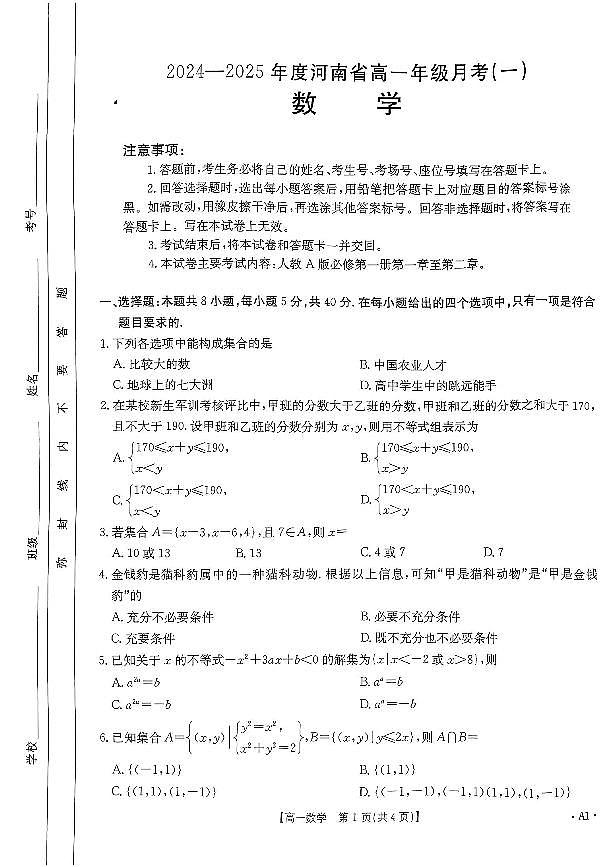 2024—2025年度河南省高一年级月考(一)
数 学
注意事项:
1.答题前,考生务必将自己的姓名、考生号、考场号、座位号填写在答题卡上。
2.回答选择题时,选出每小题答案后,用铅笔把答题卡上对应题目的答案标号涂
黑。如需改动,用橡皮擦干净后,再选涂其他答案标号。回答非选择题时,将答案写在
答题卡上。写在本试卷上无效。
3.考试结束后,将本试卷和答题卡一并交回。
4.本试卷主要考试内容:人教A版必修第一册第一章至第二章。
一、选择题:本题共8小题,每小题5分,共40分.在每小题给出的四个选项中,只有一项是符合
题目要求的.
1.下列各选项中能构成集合的是
A.比较大的数 B.中国农业人才
C.地球上的七大洲 D.高中学生中的跳远能手
2.在某校新生军训考核评比中,甲班的分数大于乙班的分数,甲班和乙班的分数之和大于170,
且不大于190.设甲班和乙班的分数分别为x,y,则用不等式组表示为
A.{170≤x+y≤190, x<y B.{170≤x+y≤190, x>y
C.{170<x+y≤190, x<y D.{170<x+y≤190, x>y
3.若集合A={x-3,x-6,4},且7∈A,则x=
A.10或13 B.13 C.4或7 D.7
4.金钱豹是猫科豹属中的一种猫科动物.根据以上信息,可知“甲是猫科动物”是“甲是金钱
豹”的
A.充分不必要条件 B.必要不充分条件
C.充要条件 D.既不充分也不必要条件
5.已知关于x的不等式-x²+3ax+b<0的解集为{x|x<-2或x>8},则
A.a²ᵃ=b B.aᵃ=b
C.a²ᵃ=-b D.aᵃ=-b
6.已知集合A={(x,y)|{y²=x², x²+y²=2},B={(x,y)|y≤2x},则A∩B=
A.{(-1,1)} B.{(1,1)}
C.{(1,1),(1,-1)} D.{(-1,-1),(-1,1)(1,1),(1,-1)}
【高一数学 第1页(共4页)】
·A1·
考号
姓名
班级
学校
密封线内不要答题